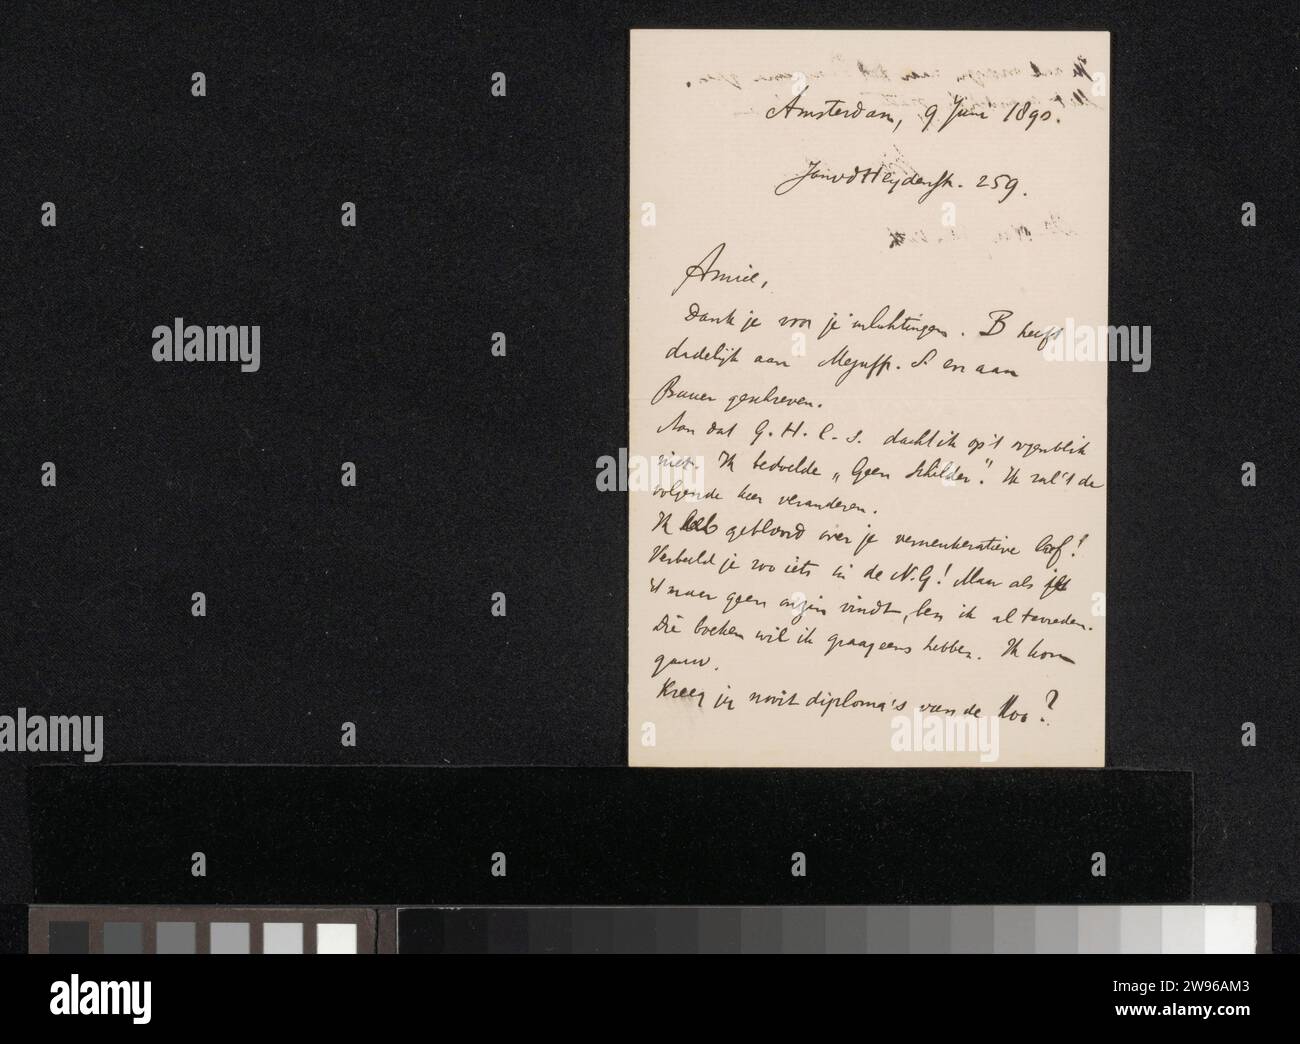 Amsterdam, 9 Juni 1890.
JanvdHeydenstr. 259.
Amice,
Dank je voor je inlichtingen. B heeft
dadelijk aan Mejuffr. S. en aan
Bauer geschreven.
Aan dat G. H. C. S. dacht ik op 't oogenblik
niet. Ik bedoelde „Geen Schilder". Ik zal 't de
volgende keer veranderen.
Ik heb gebloosd over je lof!
Verbeeld je zoo iets in de N.G.! Maar als
't maar geen onzin vindt, ben ik al tevreden.
Die boeken wil ik graag eens hebben. Ik kom
gauw.
Kreeg jij nooit diploma's van de ?
alamy
alamy
alamy
alamy
alamy
Image ID: 2W96AM3
www.alamy.com